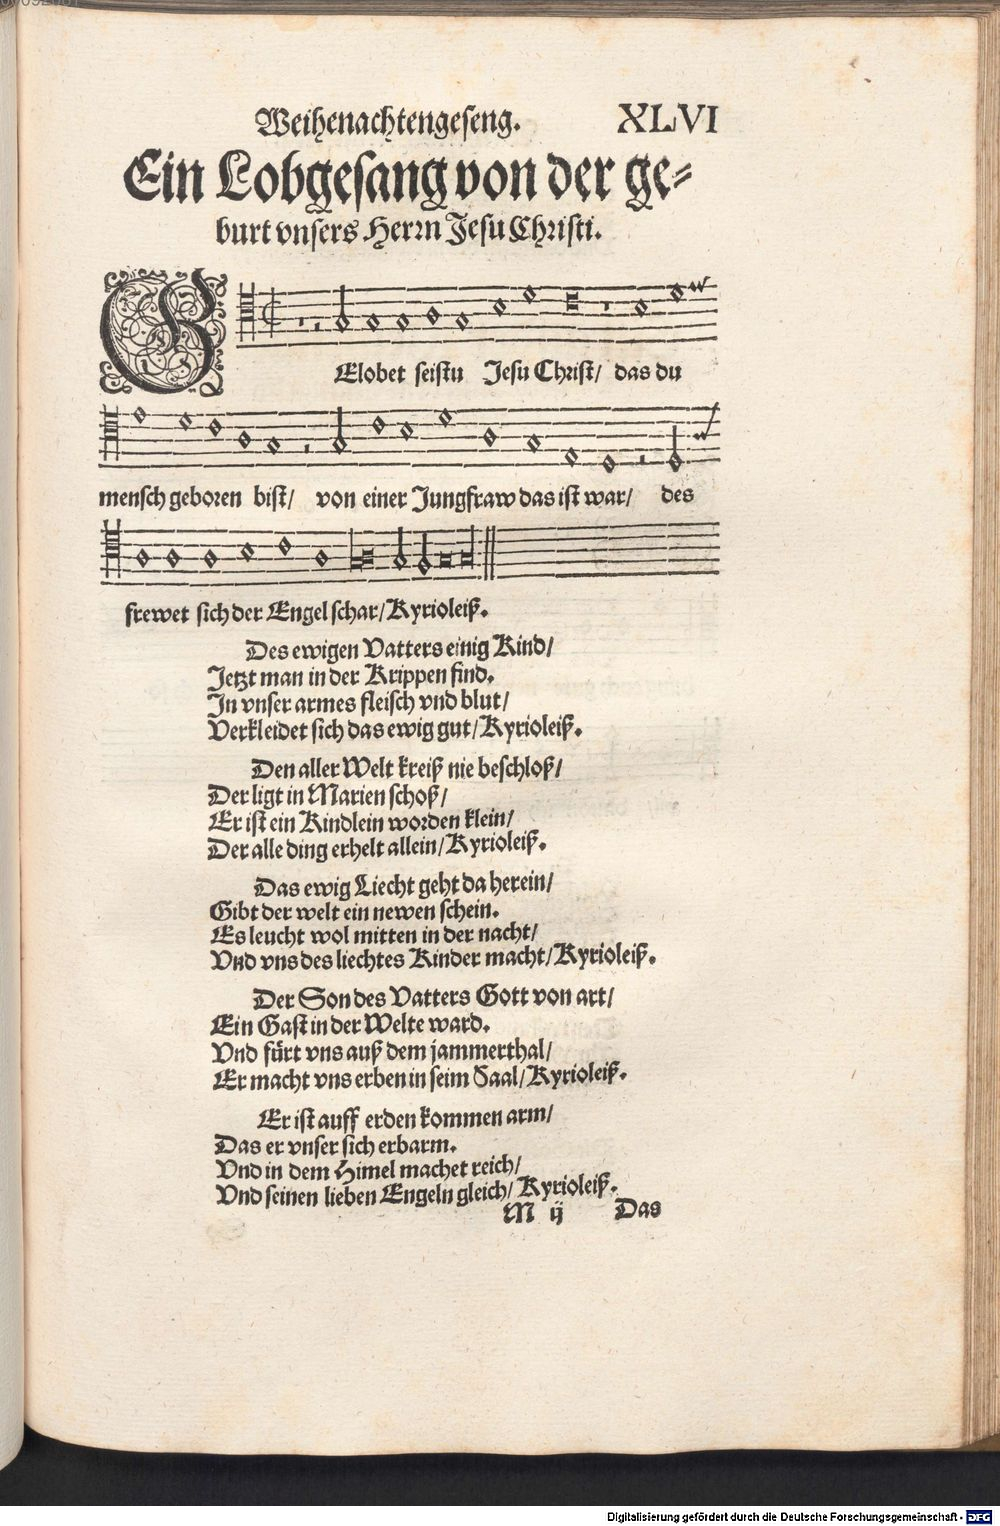 Weihenachtengeseng. XLVI
Ein Lobgesang von der ge-
burt vnsers Herrn Jesu Christi.
GElobet seistu Jesu Christ/ das du
mensch geboren bist/ von einer Jungfraw das ist war/ des
frewet sich der Engel schar/ Kyrioleiß.
Des ewigen Vatters einig Kind/
Jetzt man in der Krippen find.
In vnser armes fleisch vnd blut/
Verkleidet sich das ewig gut/ Kyrioleiß.
Den aller Welt kreiß nie beschloß/
Der ligt in Marien schoß/
Er ist ein Kindlein worden klein/
Der alle ding erhelt allein/ Kyrioleiß.
Das ewig Liecht geht da herein/
Gibt der welt ein newen schein.
Es leucht wol mitten in der nacht/
Vnd vns des liechtes Kinder macht/ Kyrioleiß.
Der Son des Vatters Gott von art/
Ein Gast in der Welte ward.
Vnd fürt vns auß dem jammerthal/
Er macht vns erben in seim Saal/ Kyrioleiß.
Er ist auff erden kommen arm/
Das er vnser sich erbarm.
Vnd in dem Himel machet reich/
Vnd seinen lieben Engeln gleich/ Kyrioleiß.
M ij Das
Digitalisierung gefördert durch die Deutsche Forschungsgemeinschaft - DFG